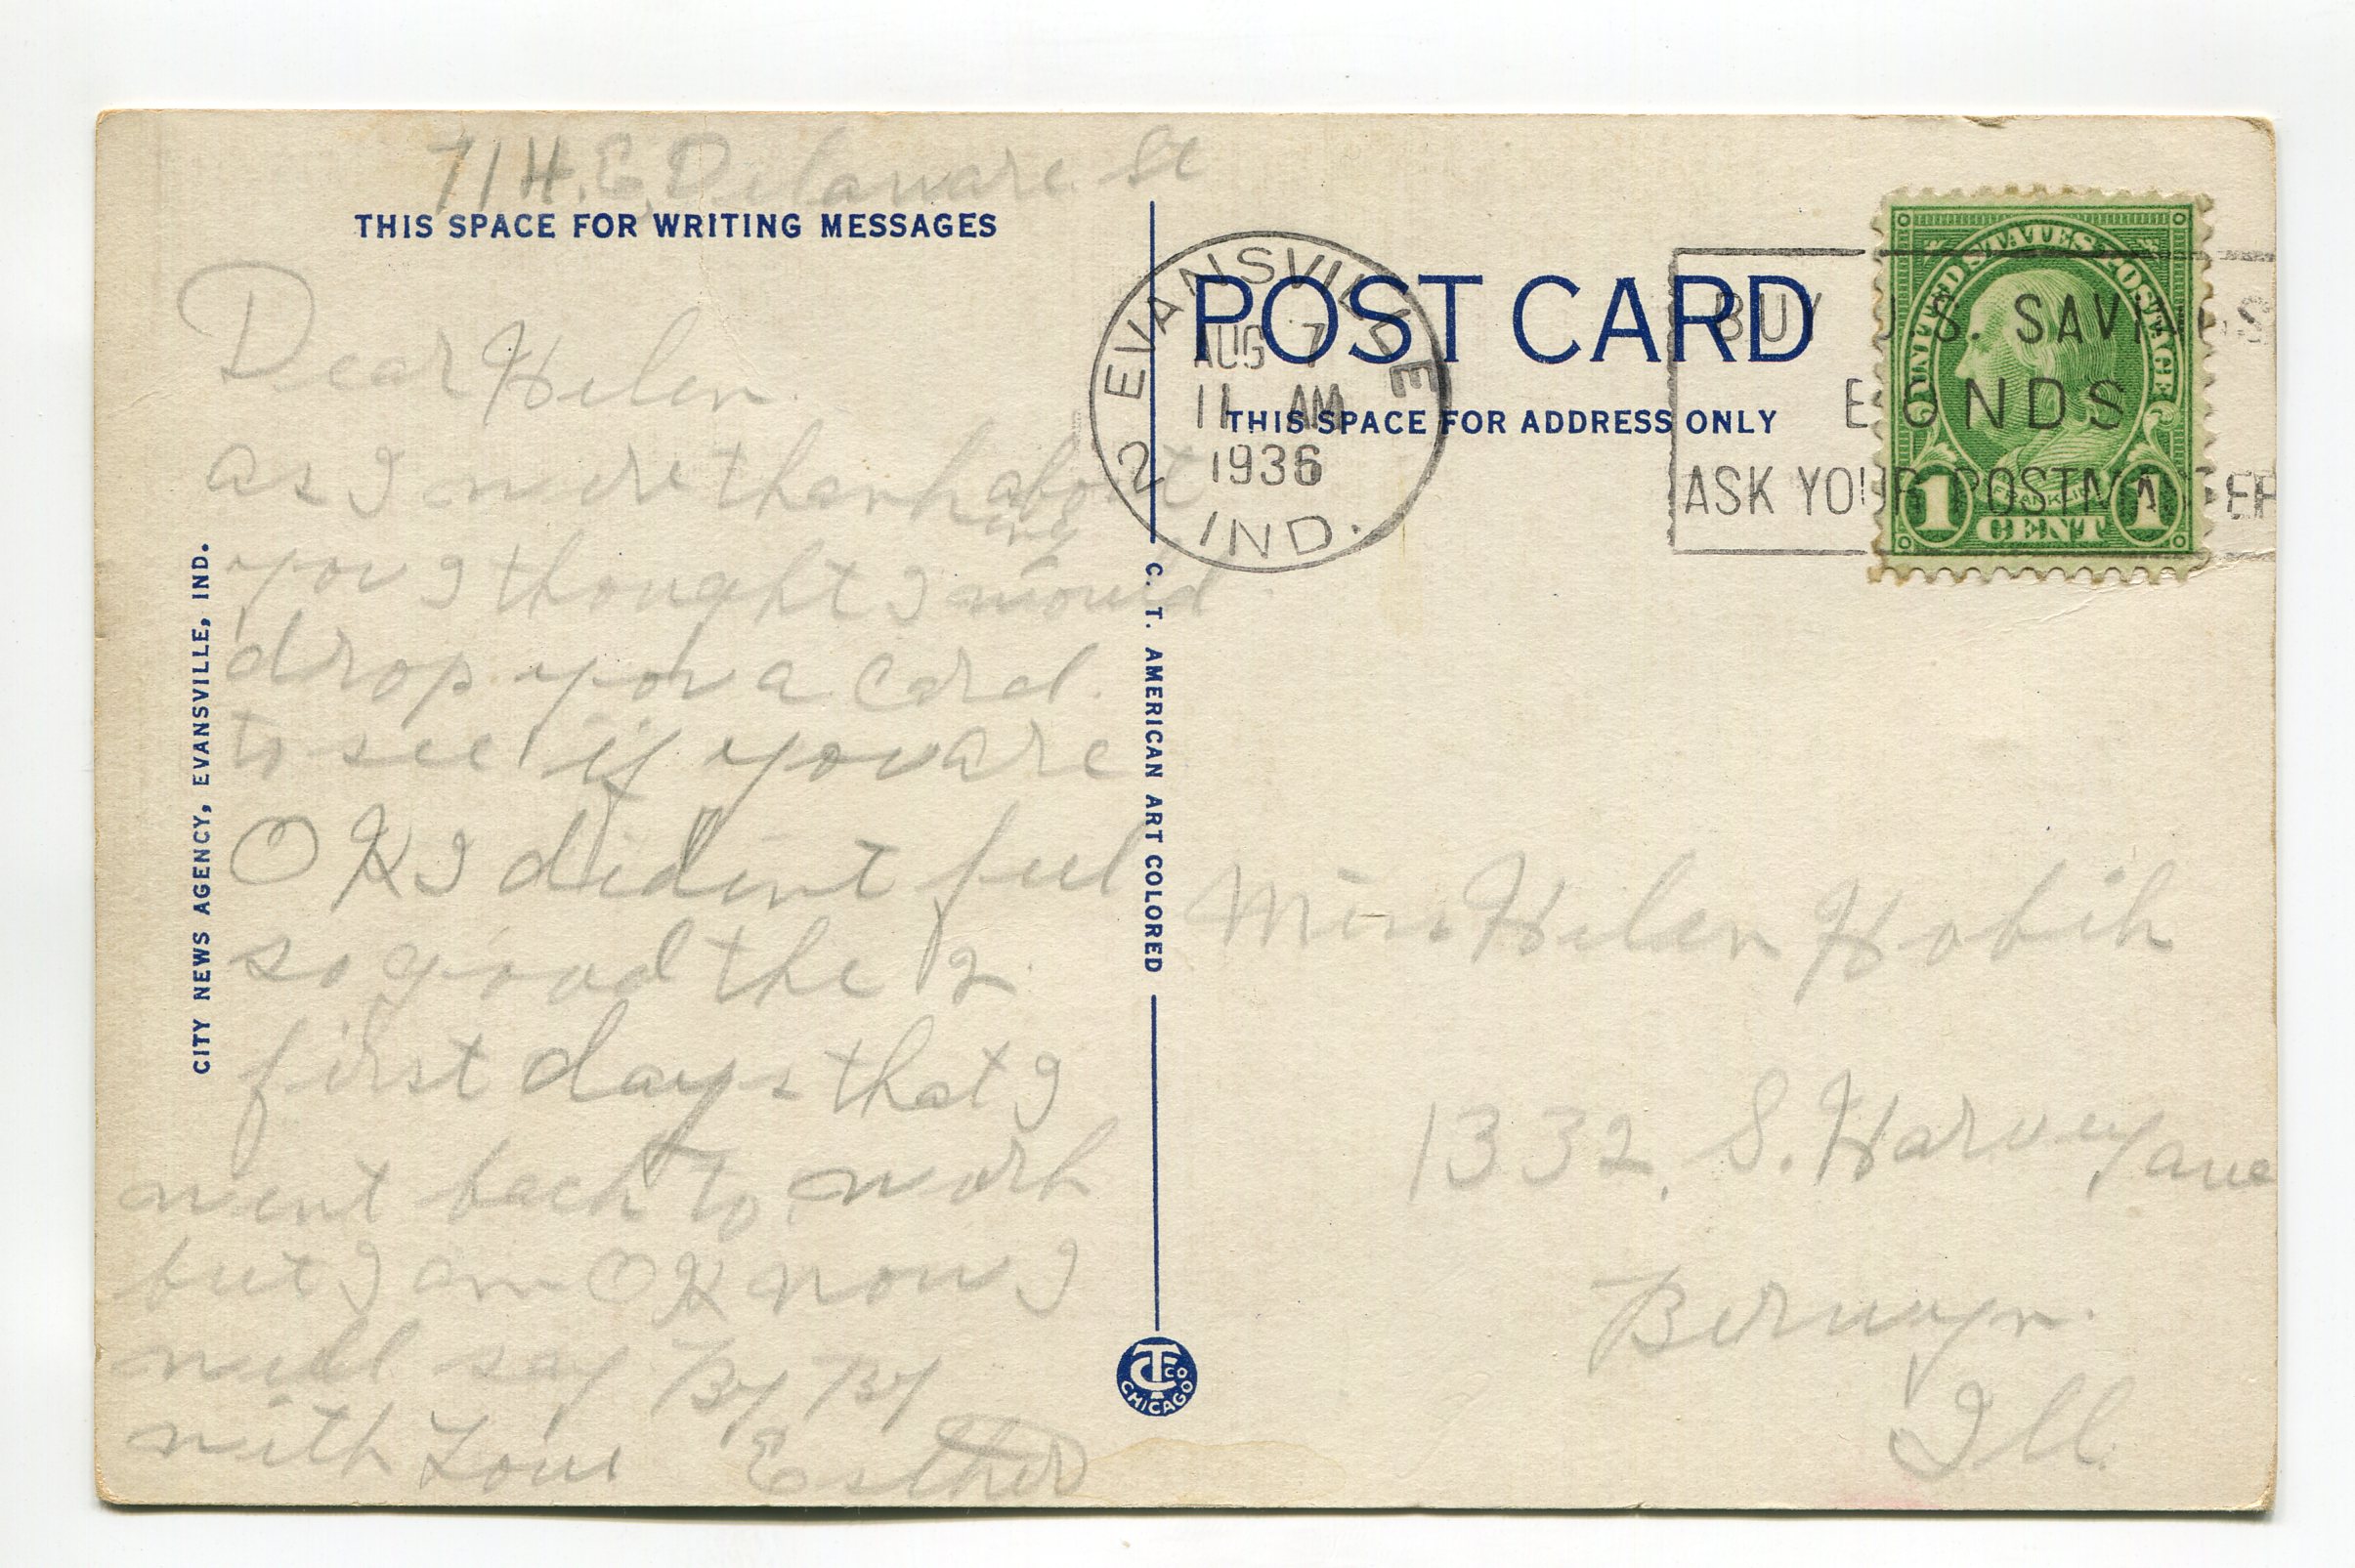 714. E. Delaware St
THIS SPACE FOR WRITING MESSAGES
Dear Helen.
as I w ere thank about
ing
you I thought I would
drop you a card.
to see if you are
OK I didint feel
so good the 2
first days that I
went back to work
but I am OK now I
will say By By
with Love Esther
CITY NEWS AGENCY, EVANSVILLE, IND.
C. T. AMERICAN ART COLORED
CTCO CHICAGO
POST CARD
THIS SPACE FOR ADDRESS ONLY
EVANSVILLE
2
AUG 7
11 AM
1936
IND.
BUY U.S. SAVINGS
BONDS
ASK YOUR POSTMASTER
UNITED STATES POSTAGE
FRANKLIN
1 CENT 1
Miss Helen Hobik
1332. S. Harvey ave
Berwyn.
Ill.